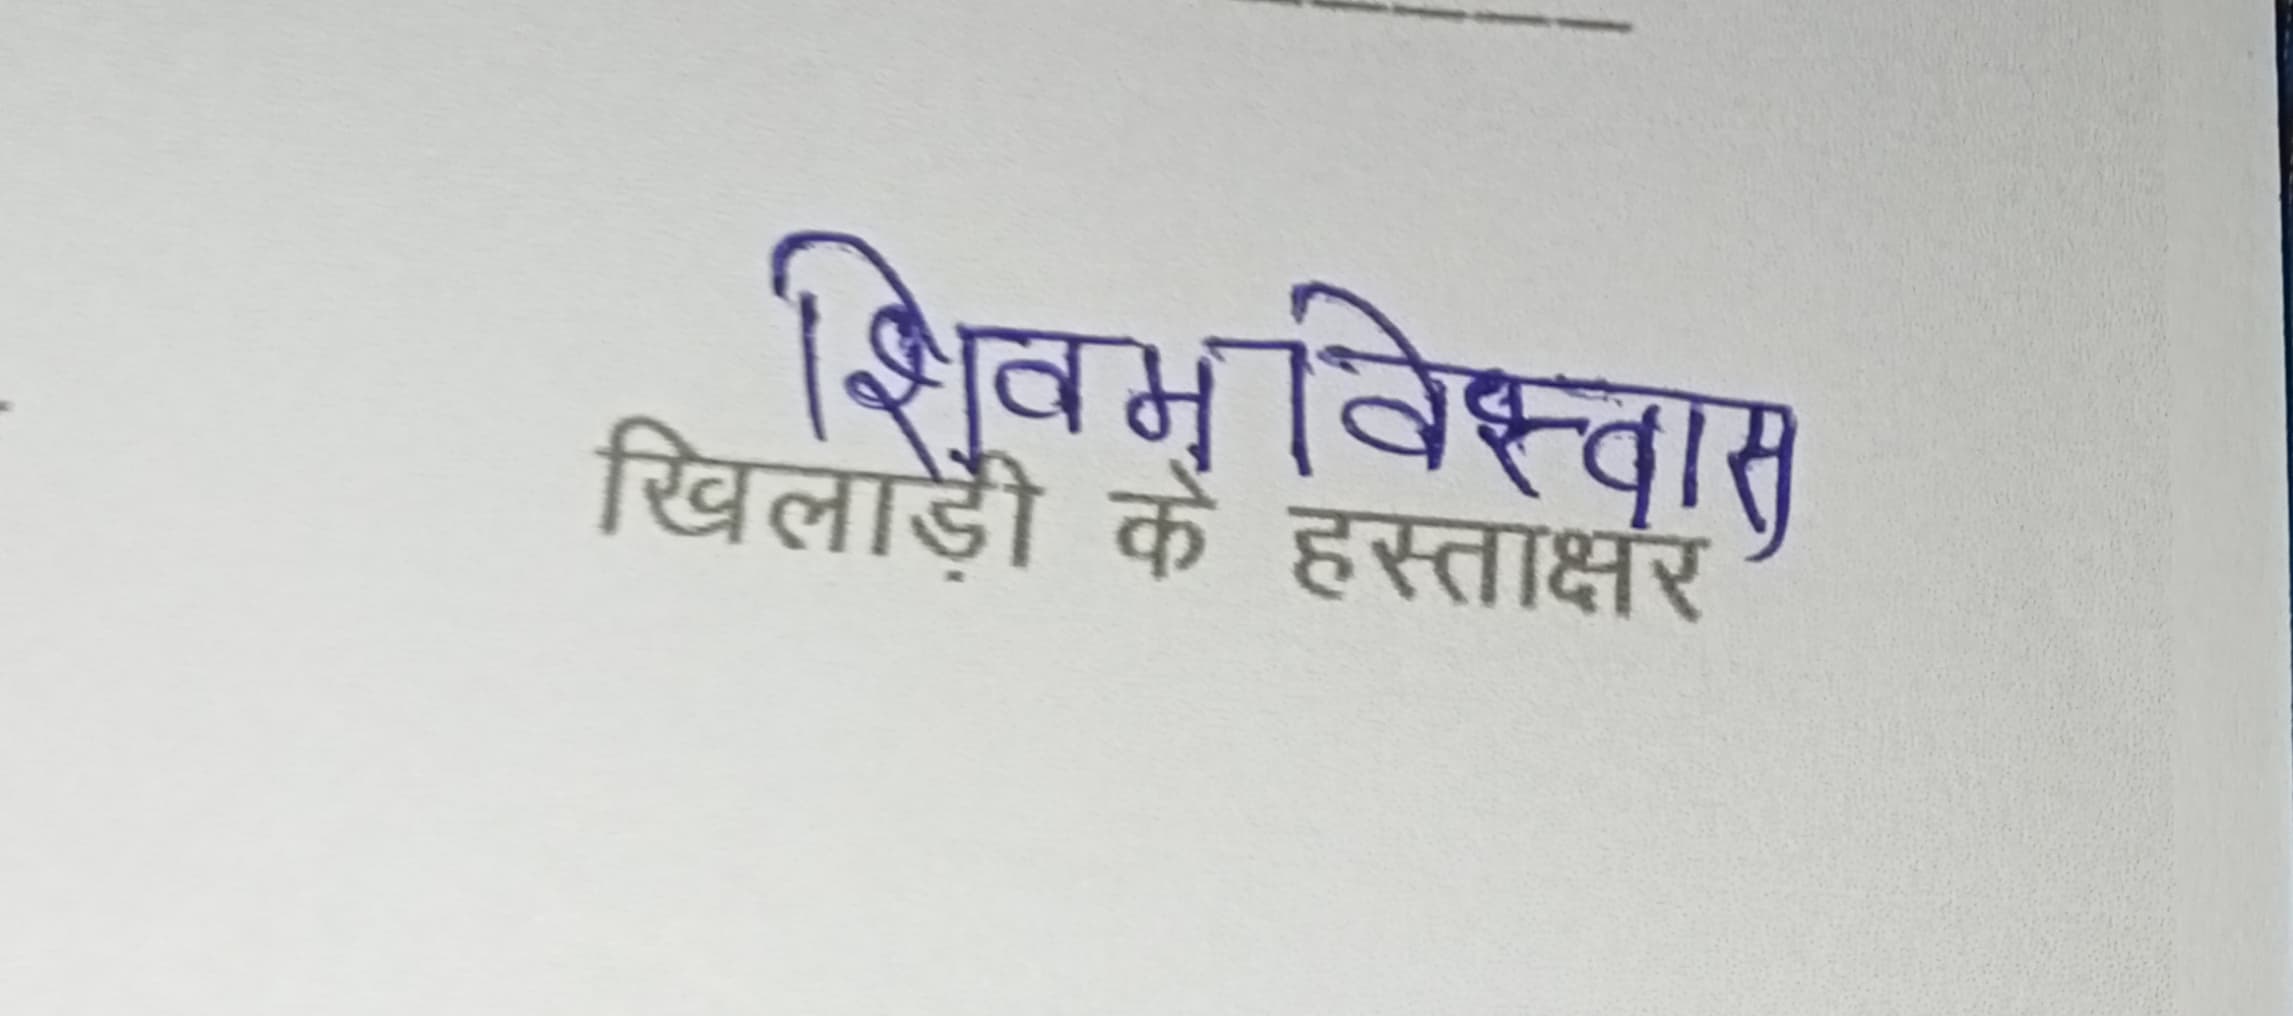 शिवम विश्वास
खिलाड़ी के हस्ताक्षर